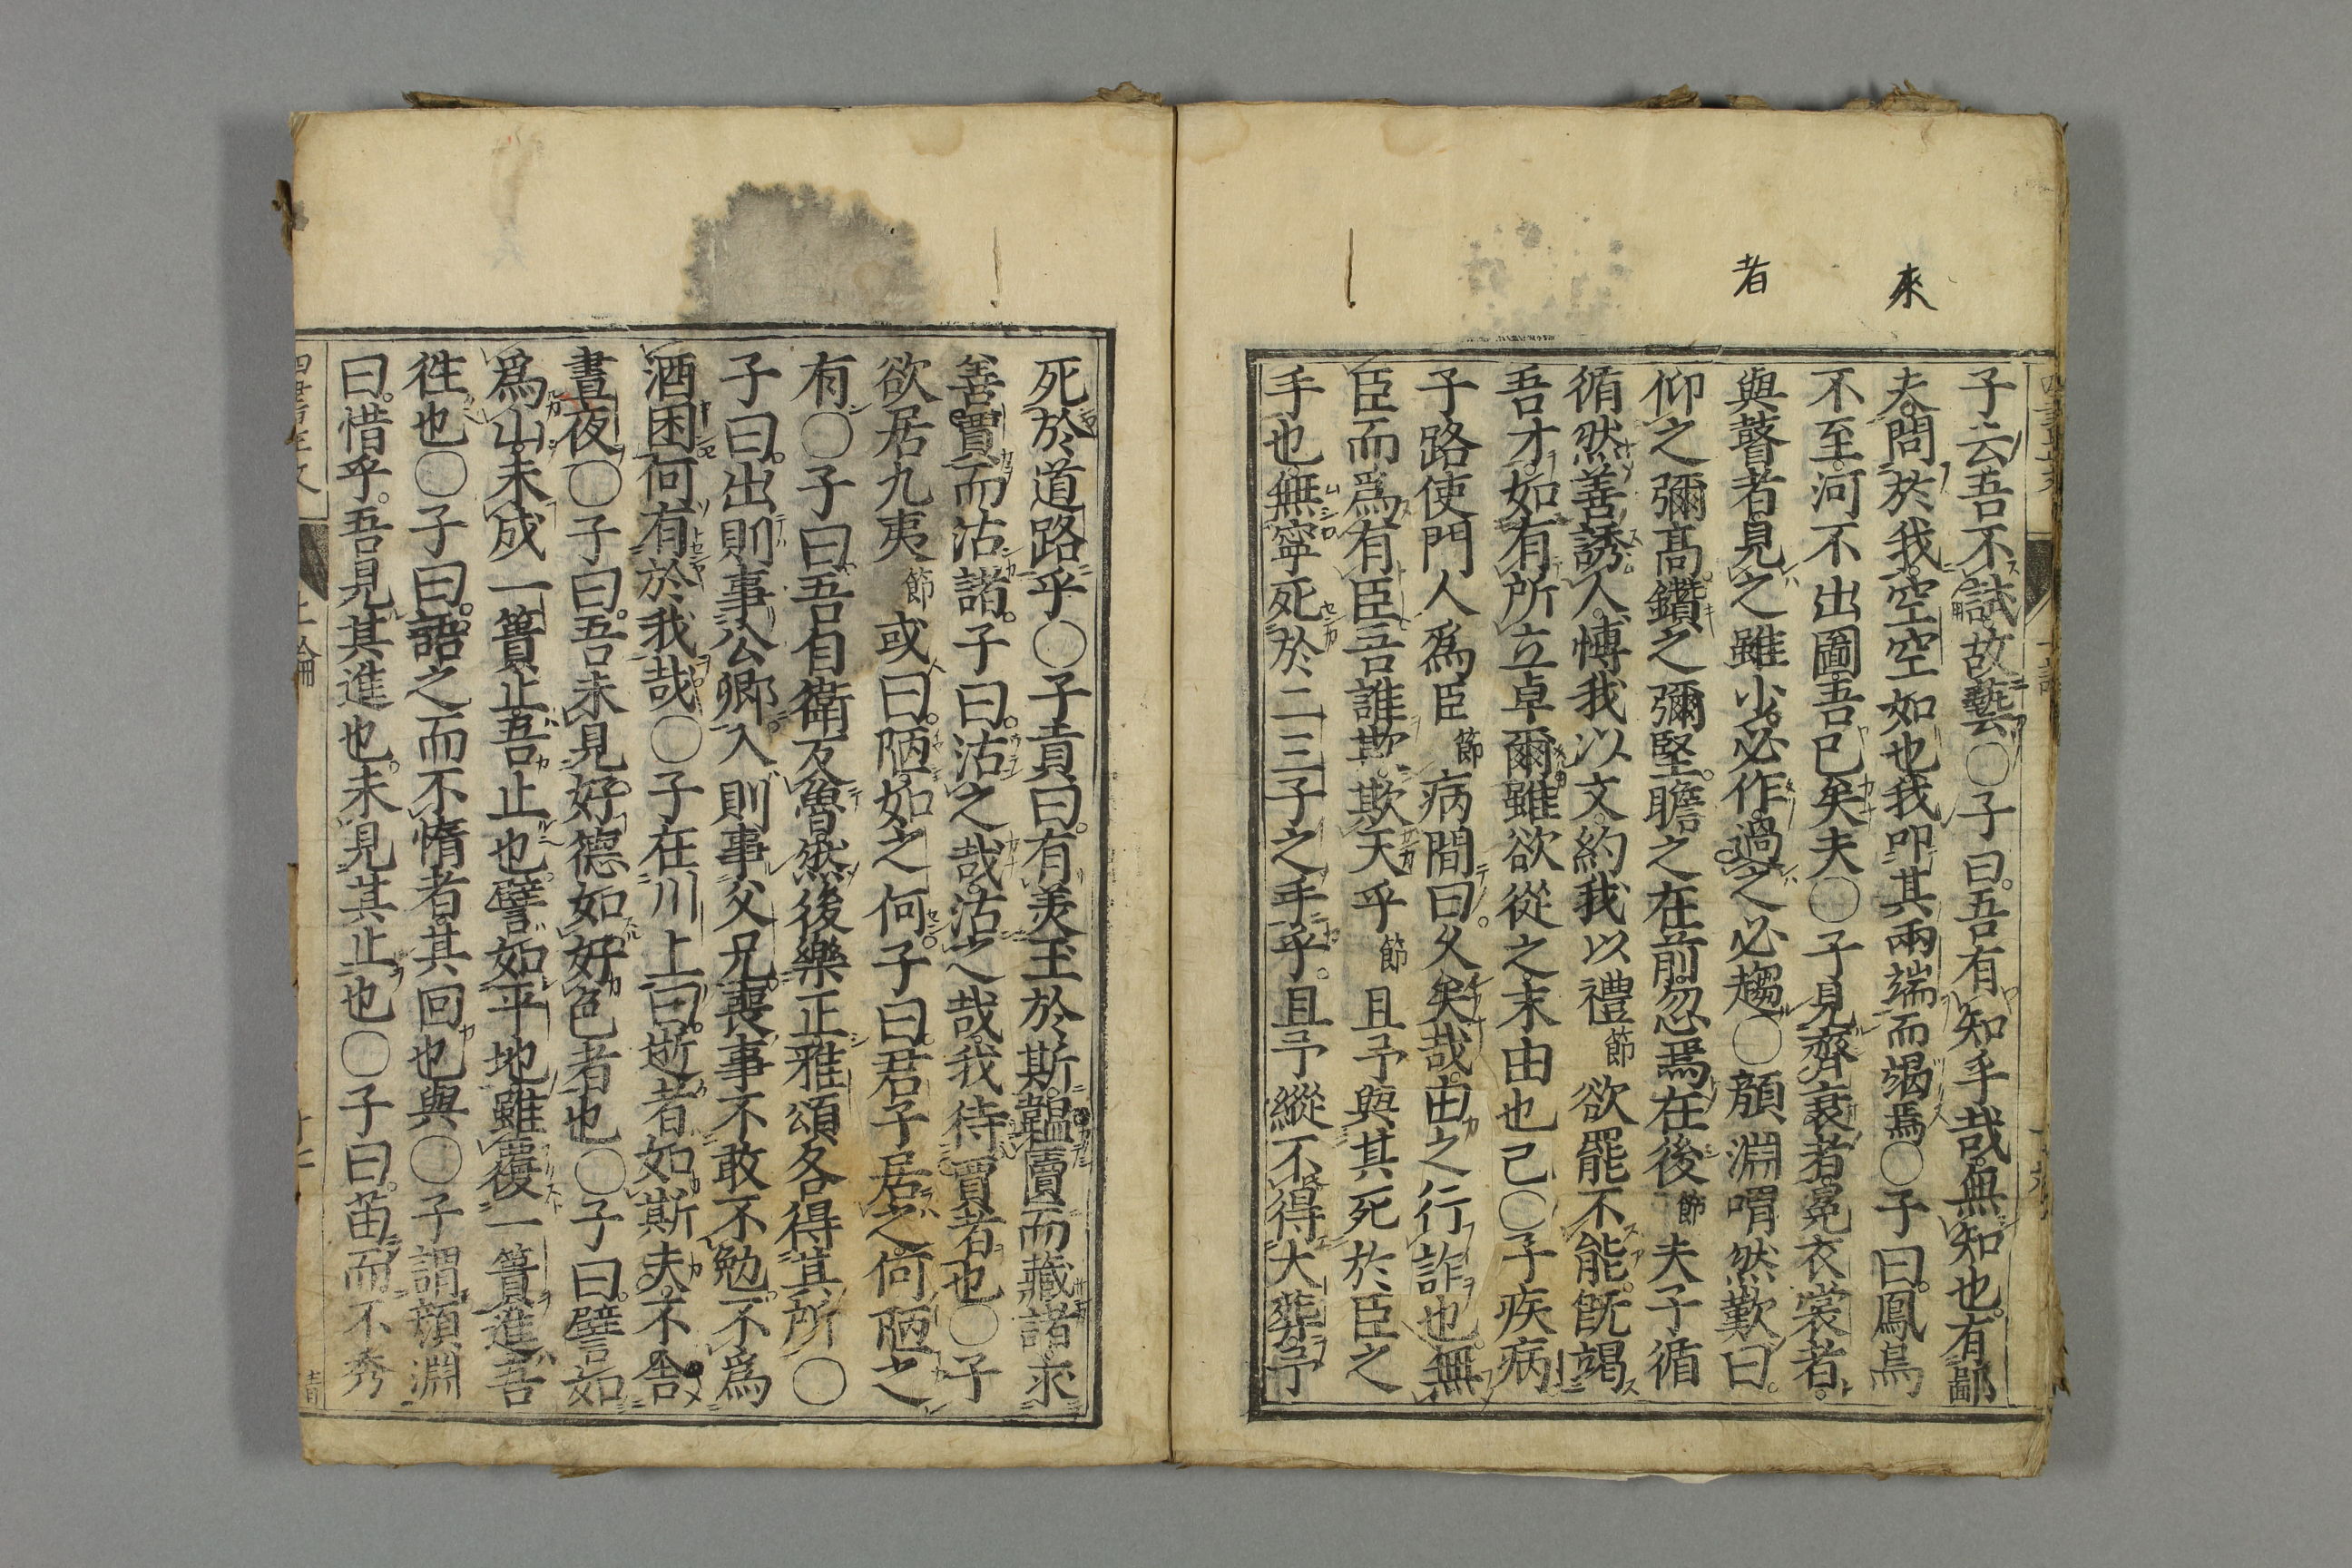 來
者
子云吾不試故藝〇子曰吾有知乎哉無知也有鄙
夫問於我空空如也我叩其兩端而竭焉〇子曰鳳鳥
不至河不出圖吾已矣夫〇子見齊衰者冕衣裳者
與瞽者見之雖少必作過之必趨〇顏淵喟然歎曰
仰之彌高鑽之彌堅瞻之在前忽焉在後節夫子循
循然善誘人博我以文約我以禮節欲罷不能旣竭
吾才如有所立卓爾雖欲從之末由也己〇子疾病
子路使門人爲臣節病間曰久矣哉由之行詐也無
臣而爲有臣吾誰欺欺天乎節且予與其死於臣之
手也無寧死於二三子之手乎且予縱不得大葬予
死於道路乎〇子貢曰有美玉於斯韞匵而藏諸求
善賈而沽諸子曰沽之哉沽之哉我待賈者也〇子
欲居九夷節或曰陋如之何子曰君子居之何陋之
有〇子曰吾自衛反魯然後樂正雅頌各得其所〇
子曰出則事公卿入則事父兄喪事不敢不勉不爲
酒困何有於我哉〇子在川上曰逝者如斯夫不舍
晝夜〇子曰吾未見好德如好色者也〇子曰譬如
爲山未成一簣止吾止也譬如平地雖覆一簣進吾
徃也〇子曰語之而不惰者其回也與〇子謂顏淵
曰惜乎吾見其進也未見其止也〇子曰苗而不秀